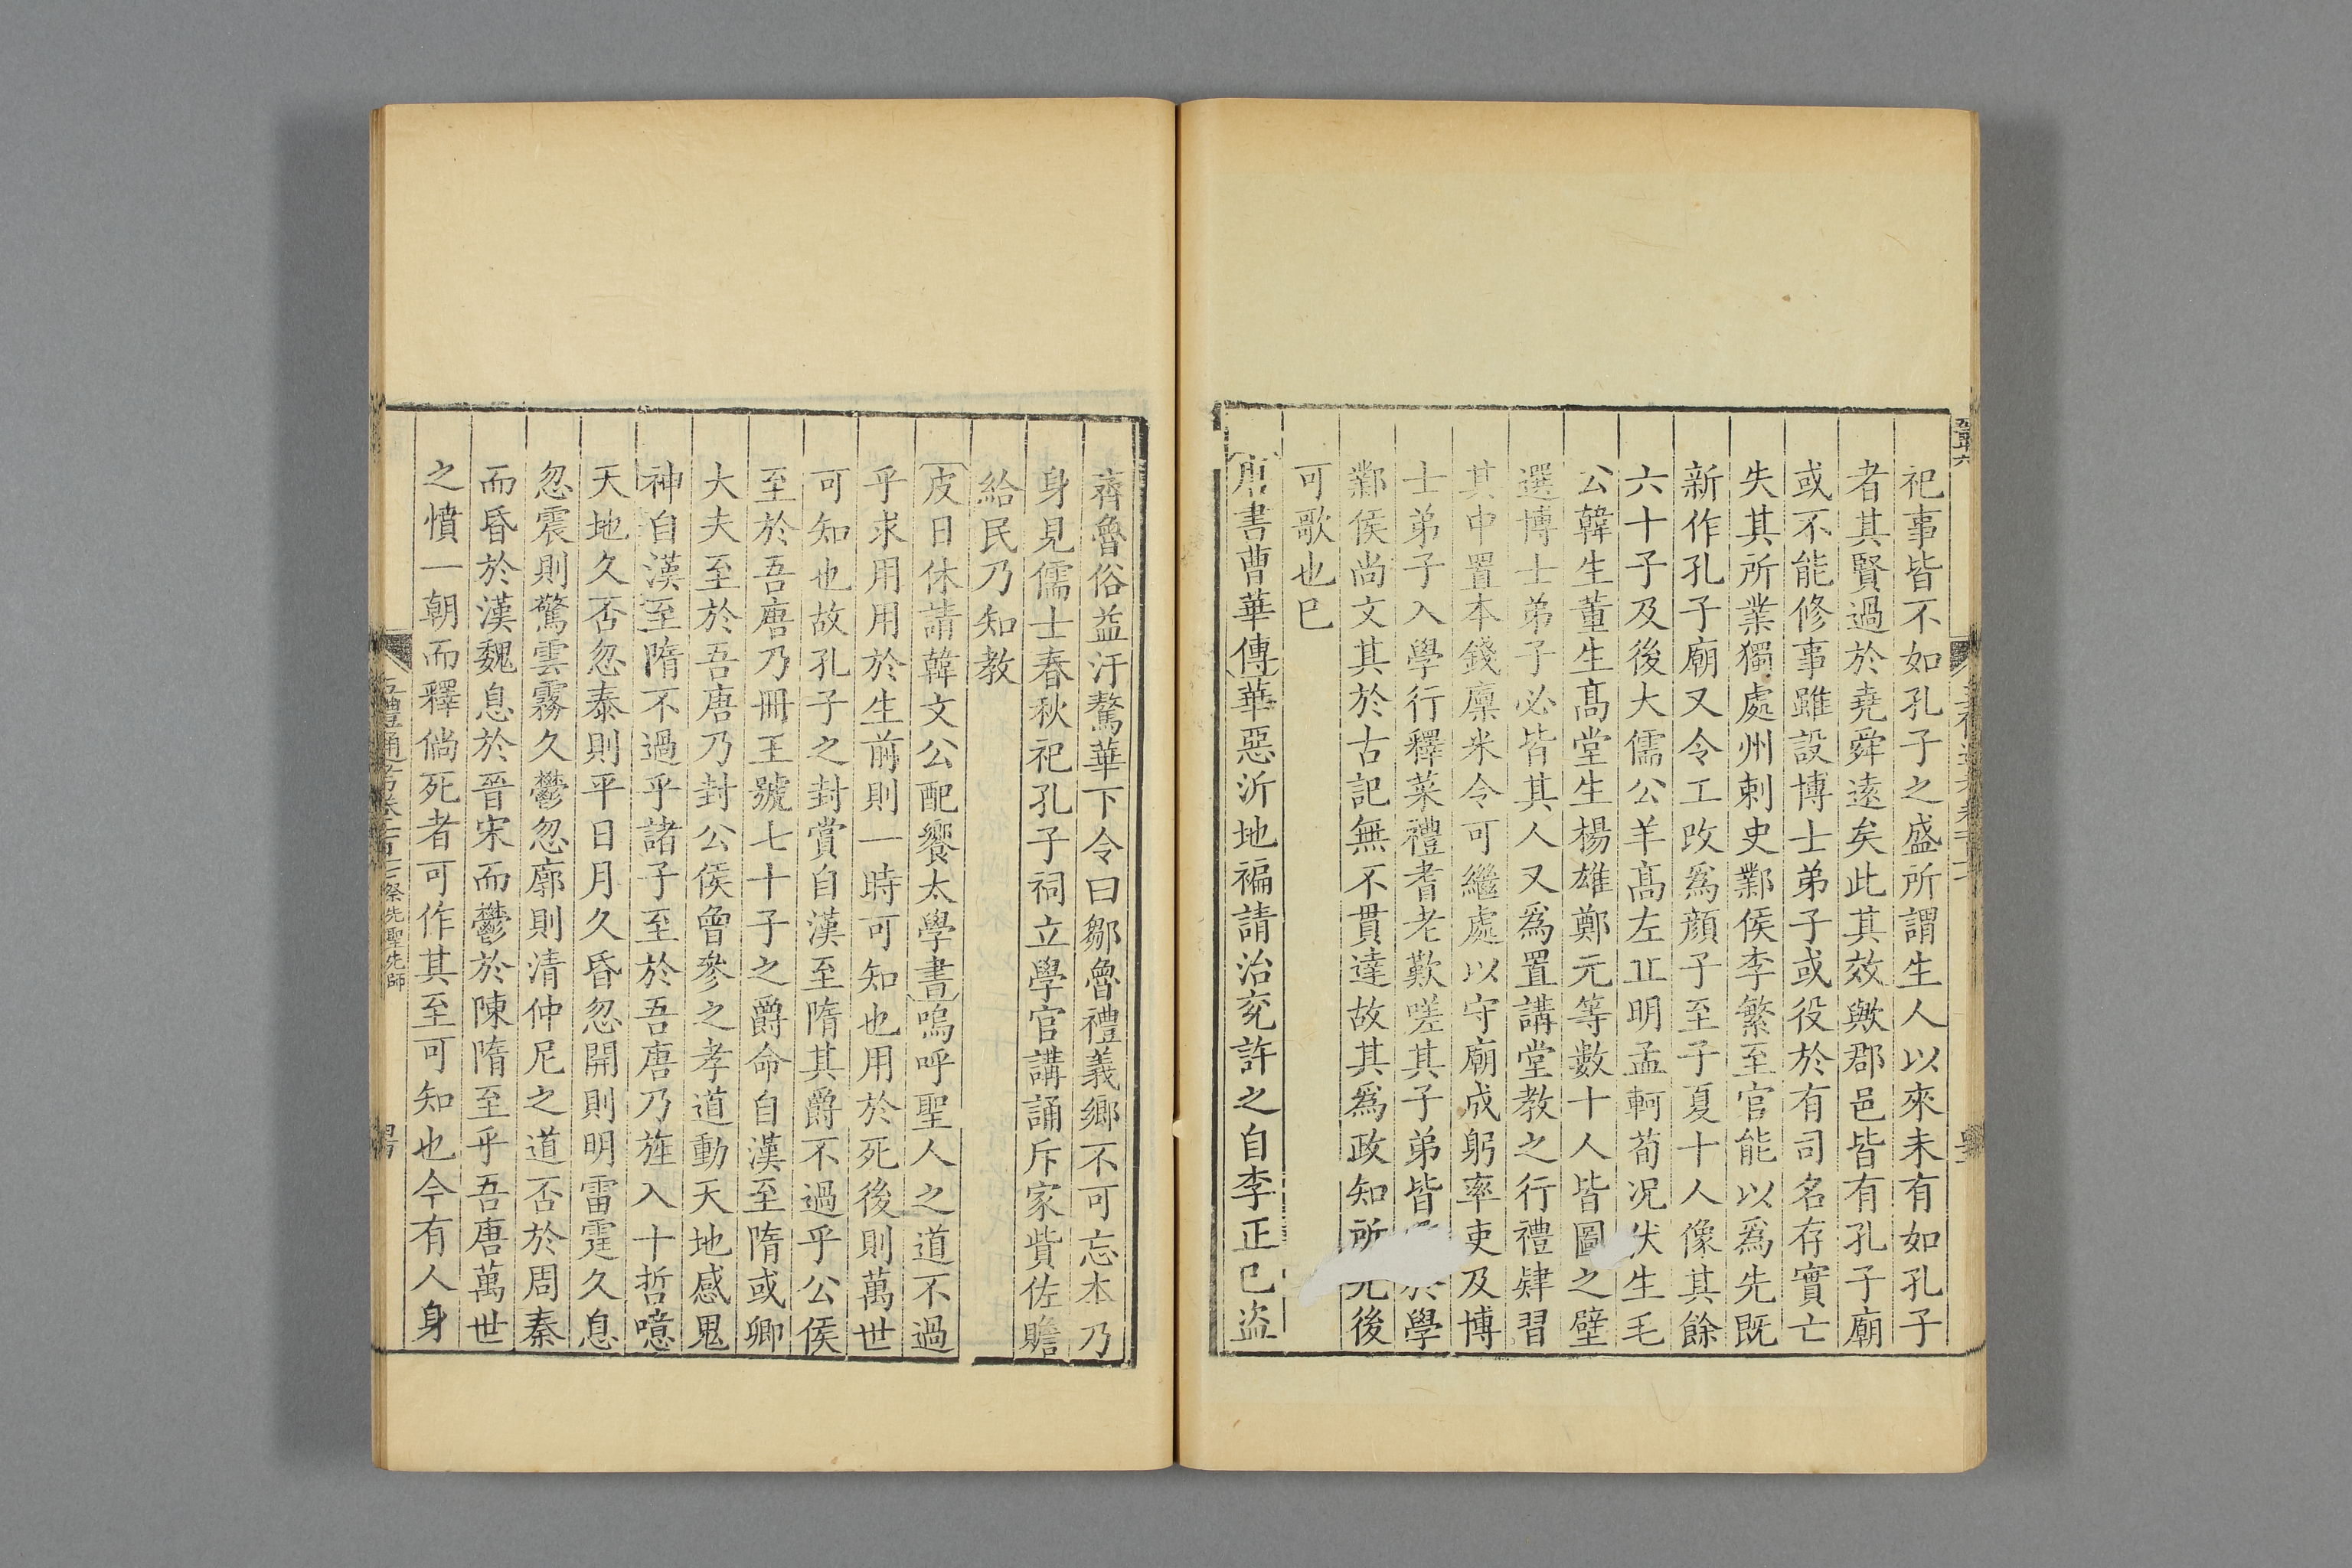 祀事皆不如孔子之盛所謂生人以來未有如孔子
者其賢過於堯舜遠矣此其效歟郡邑皆有孔子廟
或不能修事雖設博士弟子或役於有司名存實亡
失其所業獨處州刺史鄴侯李繁至官能以爲先既
新作孔子廟又令工改爲顏子至子夏十人像其餘
六十子及後大儒公羊高左丘明孟軻荀況伏生毛
公韓生董生高堂生楊雄鄭元等數十人皆圖之壁
選博士弟子必皆其人又爲置講堂教之行禮肄習
其中置本錢廩米令可繼處以守廟成躬率吏及博
士弟子入學行釋菜禮耆老歎嗟其子弟皆於學
鄴侯尚文其於古記無不貫達故其爲政知所先後
可歌也已
唐書曹華傳華惡沂地褊請治兗許之自李正已盜
齊魯俗益汙驁華下令曰鄒魯禮義鄉不可忘本乃
身見儒士春秋祀孔子祠立學官講誦斥家貲佐贍
給民乃知教
皮日休請韓文公配饗太學書嗚呼聖人之道不過
乎求用用於生前則一時可知也用於死後則萬世
可知也故孔子之封賞自漢至隋其爵不過乎公侯
至於吾唐乃冊王號七十子之爵命自漢至隋或卿
大夫至於吾唐乃封公侯曾參之孝道動天地感鬼
神自漢至隋不過乎諸子至於吾唐乃旌入十哲噫
天地久否忽泰則平日月久昏忽開則明雷霆久息
忽震則驚雲霧久鬱忽廓則清仲尼之道否於周秦
而昏於漢魏息於晉宋而鬱於陳隋至乎吾唐萬世
之憤一朝而釋倘死者可作其至可知也今有人身
祭先聖先師